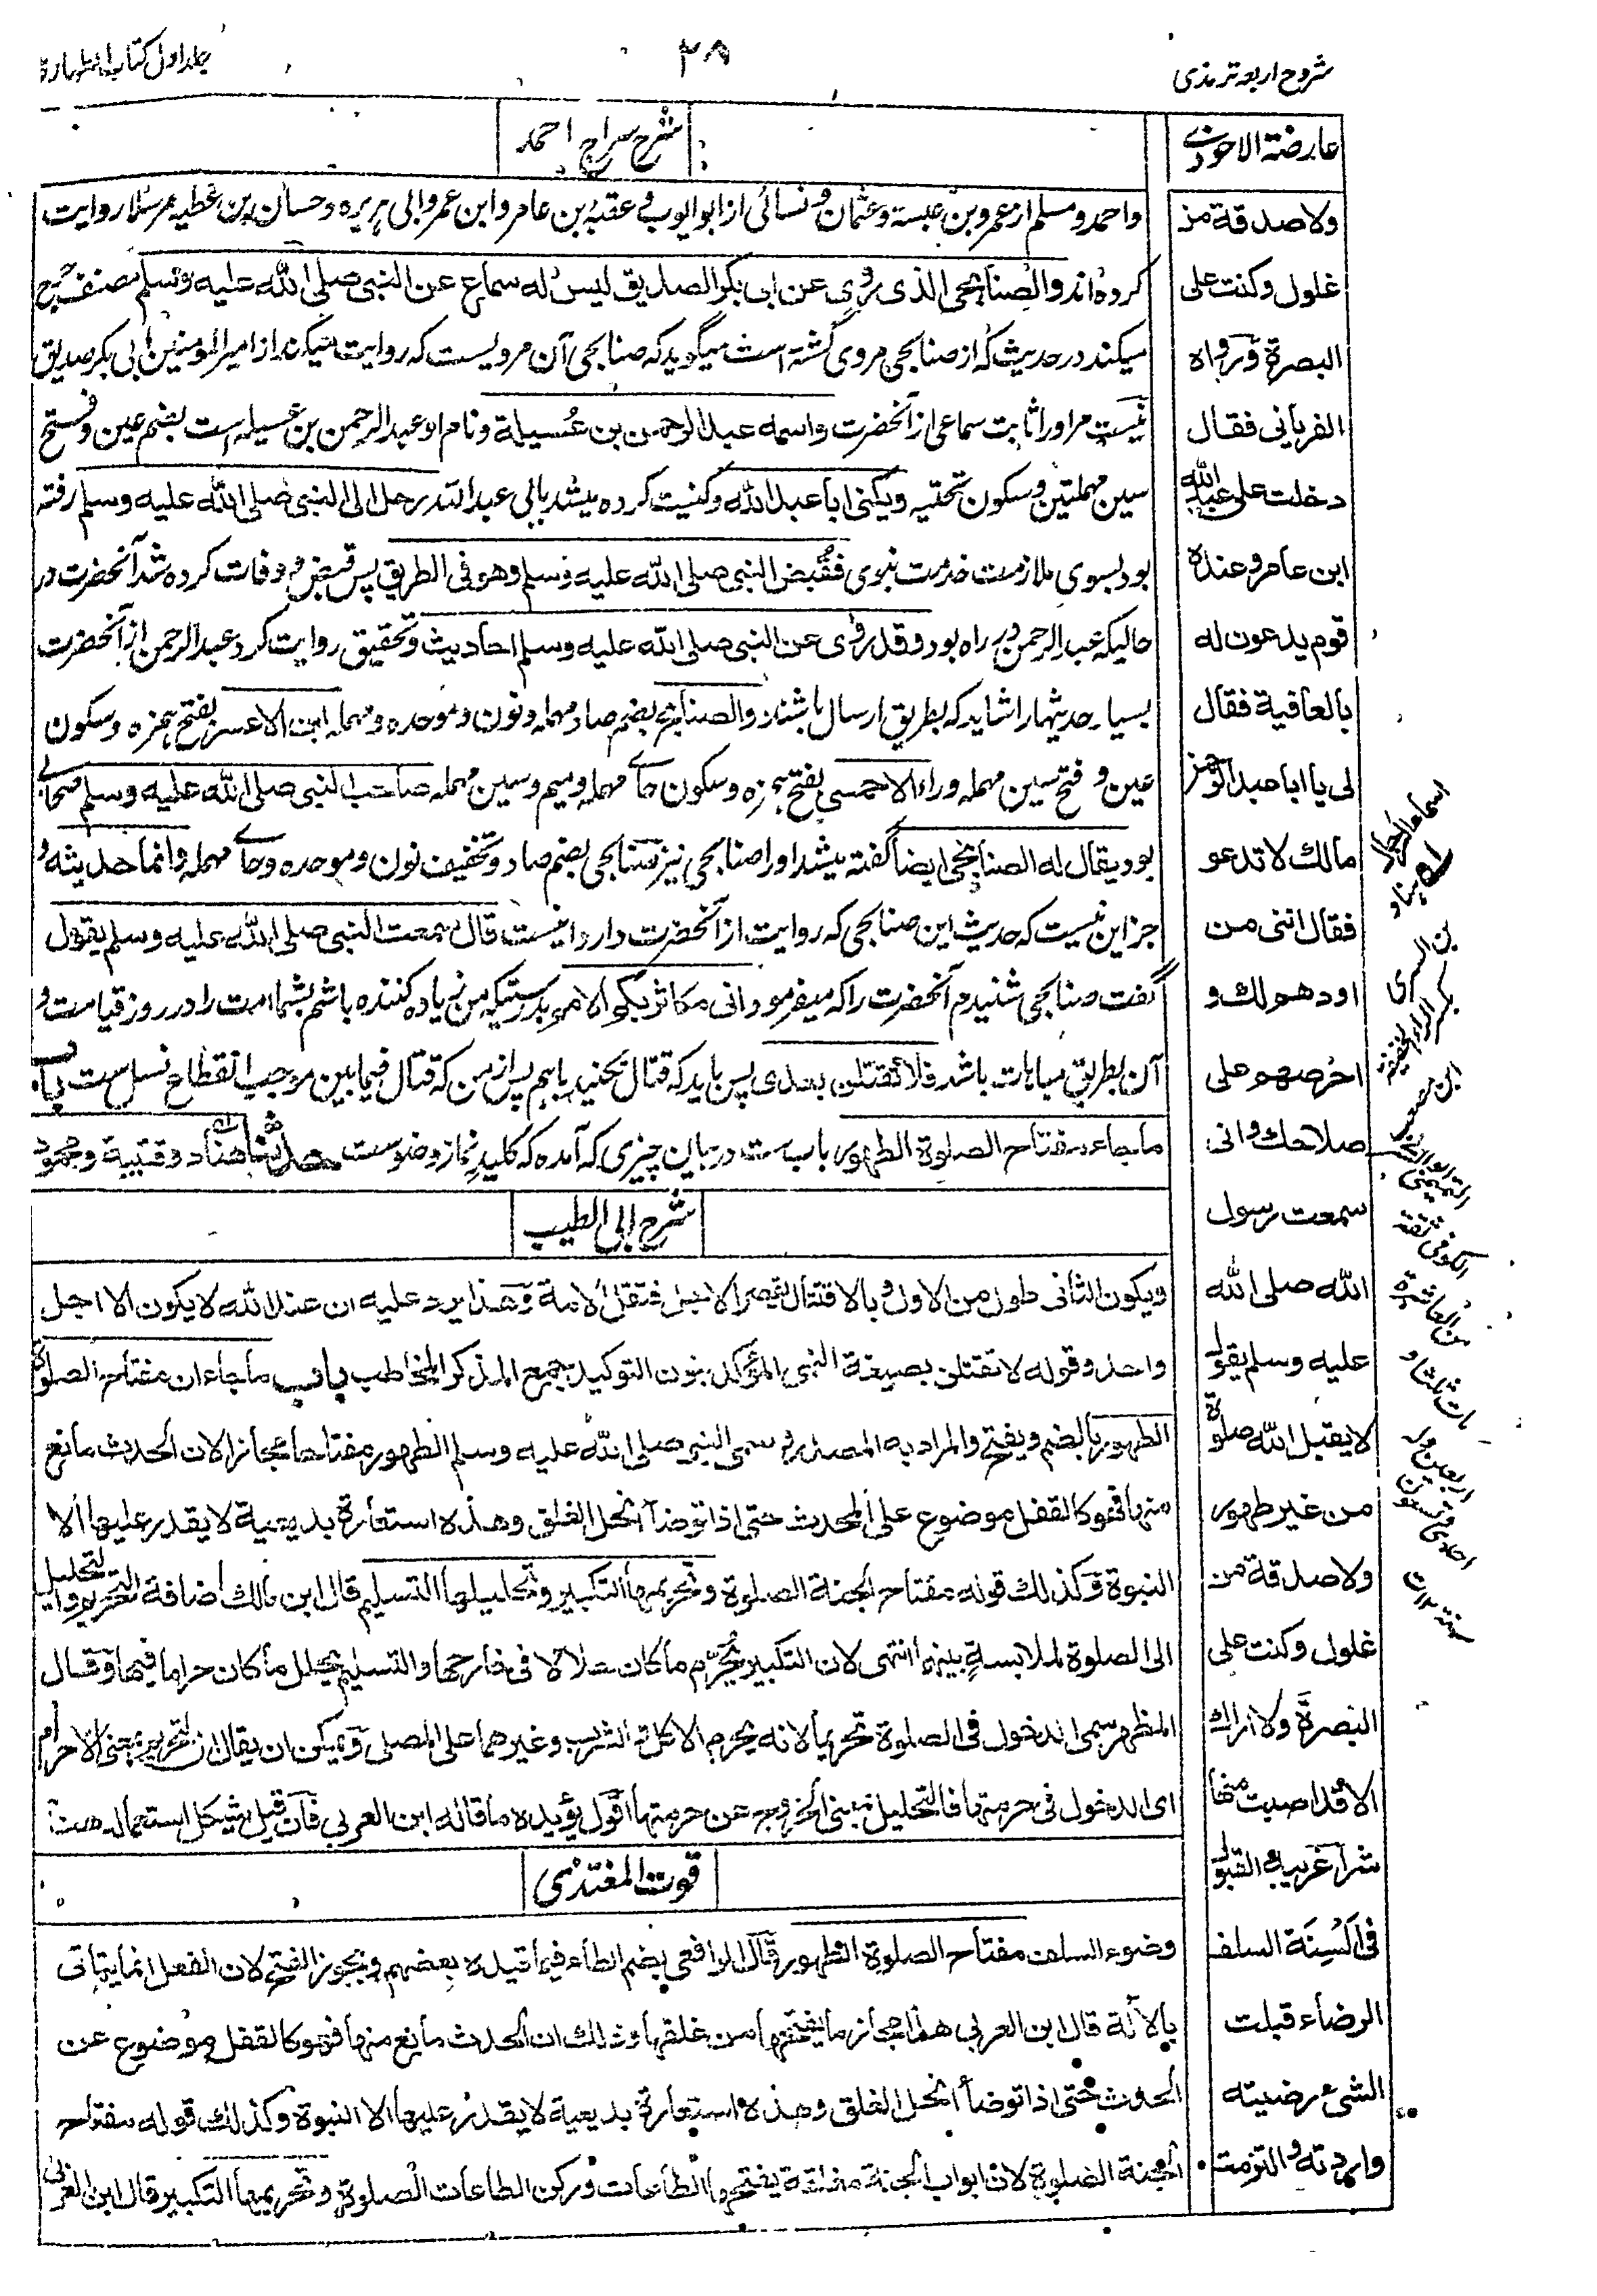 شروح اربعہ ترمذی
۳۸
جلد اول کتاب الطهارة
عارضة الاحوذي
ولا صدقة من
غلول وكنت على
البصرة ورواه
الفريابي فقال
دخلت على عبد الله
ابن عامر وعنده
قوم يدعون له
بالعافية فقال
لي يا ابا عبد الرحمن
مالك لا تدعو
فقال انني من
اودهم لك و
احرصهم على
صلاحك واني
سمعت رسول
الله صلى الله
عليه وسلم يقول
لا يقبل الله صلوة
من غير طهور
ولا صدقة من
غلول وكنت على
البصرة ولا اراك
الا قد اصبت منها
شرا غريبه القبول
في السنة السلف
الرضاء قبلت
الشيء رضيته
واردته والتزمت
شرح سراج احمد
واحمد ومسلم از عمرو بن عبسة وعثمان ونسائی از ابو ایوب و عقبہ بن عامر وابن عمر وابی ہریرہ وحسان بن عطیہ مرسلا روایت
کردہ اند والصنابحي الذي روى عن ابي بكر الصديق ليس له سماع عن النبي صلى الله عليه وسلم مصنف
میکند در حدیث کہ از صنابحی مروی گشتہ است میگوید کہ صنابحی آن مردیست کہ روایت میکند از امیر المومنین ابی بکر صدیق
نیست مر او را ثابت سماعی از آنحضرت واسمه عبد الرحمن بن عسيلة ونام او عبد الرحمن بن عسیلہ است بضم عین و فتح
سین مہملتین وسکون تحتیہ ويكنى ابا عبد الله وکنیت کردہ میشد بابی عبد اللہ رحل الى النبي صلى الله عليه وسلم رفتہ
بود بسوی ملازمت خدمت نبوی فقبض النبي صلى الله عليه وسلم وهو في الطريق پس قبض و وفات کردہ شد آنحضرت در
حالیکہ عبد الرحمن در راہ بود وقد روى عن النبي صلى الله عليه وسلم احاديث وتحقیق روایت کرد عبد الرحمن از آنحضرت
بسیار حدیثہا را شاید کہ بطریق ارسال باشند والصنابح بضم صاد مہملہ ونون و موحدہ ومہملہ ابن الاعسر بفتح ہمزہ وسکون
عین و فتح سین مہملہ وراء الاحمسي بفتح ہمزہ وسکون حاے مہملہ ومیم وسین مہملہ صاحب النبي صلى الله عليه وسلم صحابی
بود يقال له الصنابحي ايضا گفتہ میشد او را صنابحی نیز صنابحی بضم صاد وتخفیف نون وموحدہ وحاے مہملہ وانما حديثه و
جز این نیست کہ حدیث این صنابحی کہ روایت از آنحضرت دارد اینست قال سمعت النبي صلى الله عليه وسلم يقول
گفت صنابحی شنیدم آنحضرت را کہ میفرمود اني مكاثر بكم الامم بدرستیکہ من زیادہ کنندہ باشم بشما امت را در روز قیامت و
آن بطریق مباہات باشد فلا تقتتلن بعدي پس باید کہ قتال نکنید باہم پس از من کہ قتال فیما بین موجب انقطاع نسل ست باب
ما جاء مفتاح الصلوة الطهور باب ست در بیان چیزی کہ آمدہ کہ کلید نماز وضوست حدثنا هناد وقتيبة ومحمود
شرح ابی الطیب
ويكون الثاني طول من الاول وبالاقتتال تقصر الاجل فتقل الامة وهذا يرد عليه ان عند الله لا يكون الا اجل
واحد وقوله لا تقتتلن بصيغة النهي المؤكد بنون التوكيد بجمع المذكر المخاطب باب ما جاء ان مفتاح الصلوة
الطهور بالضم ويفتح والمراد به المصدر وسمى النبي صلى الله عليه وسلم الطهور مفتاحا مجازا لان الحدث مانع
منها فهو كالقفل موضوع على المحدث حتى اذا توضأ انحل الغلق وهذه استعارة بديعية لا يقدر عليها الا
النبوة وكذلك قوله مفتاح الجنة الصلوة وتحريمها التكبير وتحليلها التسليم قال ابن مالك اضافة التحريم والتحليل
الى الصلوة لملابسة بينهما انتهى لان التكبير يحرم ما كان حلالا في خارجها والتسليم يحلل ما كان حراما فيها وقال
المظهر سمى الدخول في الصلوة تحريما لانه يحرم الاكل والشرب وغيرهما على المصلى ويمكن ان يقال ان التحريم بمعنى الاحرام
اي الدخول في حرمتها فالتحليل بمعنى الخروج عن حرمتها اقول يؤيده ما قاله ابن العربي فان قيل يشكل استعماله هنا
قوت المغتذی
وضوء السلف مفتاح الصلوة الطهور قال الرافعي بضم الطاء فيما قيده بعضهم ويجوز الفتح لان الفعل انما يتاتى
بالآلة قال ابن العربي هذا مجاز ما يفتحها من غلقها وذلك ان الحدث مانع منها فهو كالقفل موضوع عن
الحدث حتى اذا توضأ انحل الغلق وهذه استعارة بديعية لا يقدر عليها الا النبوة وكذلك قوله مفتاح
الجنة الصلوة لان ابواب الجنة مغلقة يفتحها الطاعات وركن الطاعات الصلوة وتحريمها التكبير قال ابن العربي
بن السري
بكسر الراء الخفيفة
ابن مصعب
التميمي
الكوفي ثقة
من العاشرة